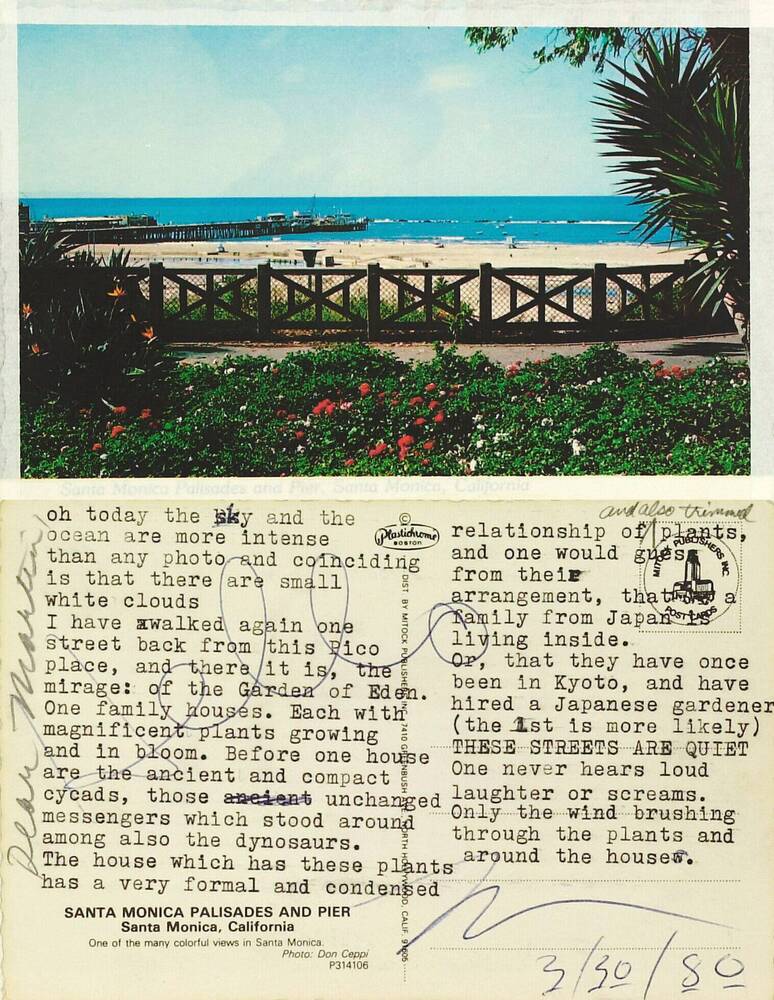 Santa Monica Palisades and Pier, Santa Monica, California
Dear Marten
oh today the sky and the
ocean are more intense
than any photo and coinciding
is that there are small
white clouds
I have xwalked again one
street back from this Pico
place, and there it is, the
mirage: of the Garden of Eden.
One family houses. Each with
magnificent plants growing
and in bloom. Before one house
are the ancient and compact
cycads, those ancient unchanged
messengers which stood around
among also the dynosaurs.
The house which has these plants
has a very formal and condensed
SANTA MONICA PALISADES AND PIER
Santa Monica, California
One of the many colorful views in Santa Monica.
Photo: Don Ceppi
P314106
©
Plastichrome
BOSTON
DIST. BY MITOCK PUBLISHERS, INC. 7410 GREENBUSH AVE. NORTH HOLLYWOOD, CALIF. 91605
and also trimmed
relationship of plants,
and one would guess
from their
arrangement, that a
family from Japan is
living inside.
Or, that they have once
been in Kyoto, and have
hired a Japanese gardener
(the 1st is more likely)
THESE STREETS ARE QUIET
One never hears loud
laughter or screams.
Only the wind brushing
through the plants and
around the houses.
MITOCK PUBLISHERS INC.
POST CARDS
3/30/80